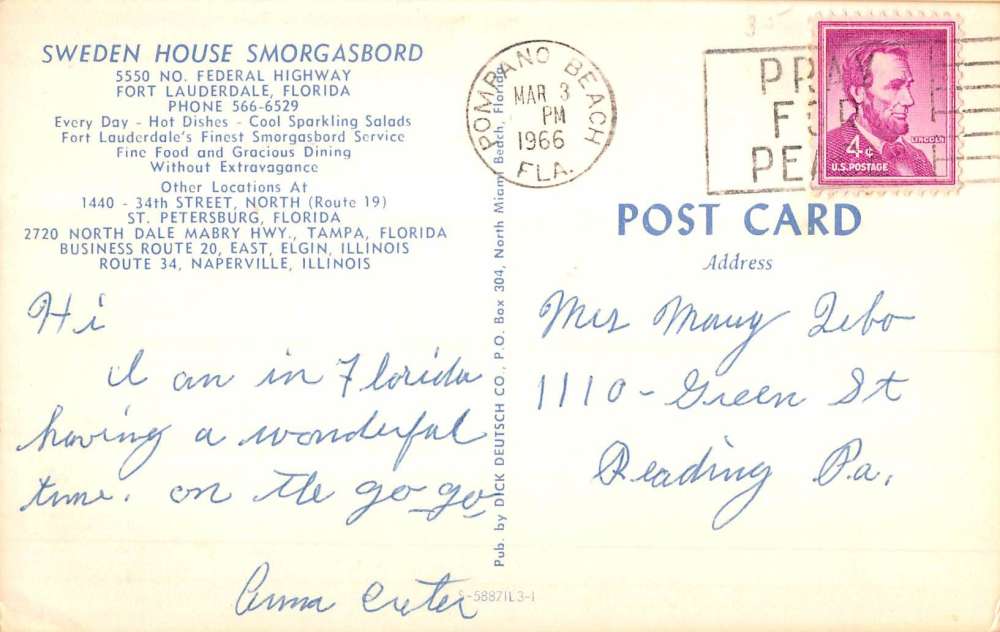 SWEDEN HOUSE SMORGASBORD
5550 NO. FEDERAL HIGHWAY
FORT LAUDERDALE, FLORIDA
PHONE 566-6529
Every Day - Hot Dishes - Cool Sparkling Salads
Fort Lauderdale's Finest Smorgasbord Service
Fine Food and Gracious Dining
Without Extravagance
Other Locations At
1440 - 34th STREET, NORTH (Route 19)
ST. PETERSBURG, FLORIDA
2720 NORTH DALE MABRY HWY., TAMPA, FLORIDA
BUSINESS ROUTE 20, EAST, ELGIN, ILLINOIS
ROUTE 34, NAPERVILLE, ILLINOIS
Hi
I an in Florida
having a wonderful
time. on the go go
Anna
S-58871L3-1
Pub. by DICK DEUTSCH CO., P.O. Box 304, North Miami Beach, Florida
POMPANO BEACH
MAR 3
PM
1966
FLA.
PRAY
FOR
PEACE
LINCOLN
4¢
U.S. POSTAGE
POST CARD
Address
Mrs Mary Zebo
1110 - Green St
Reading Pa.